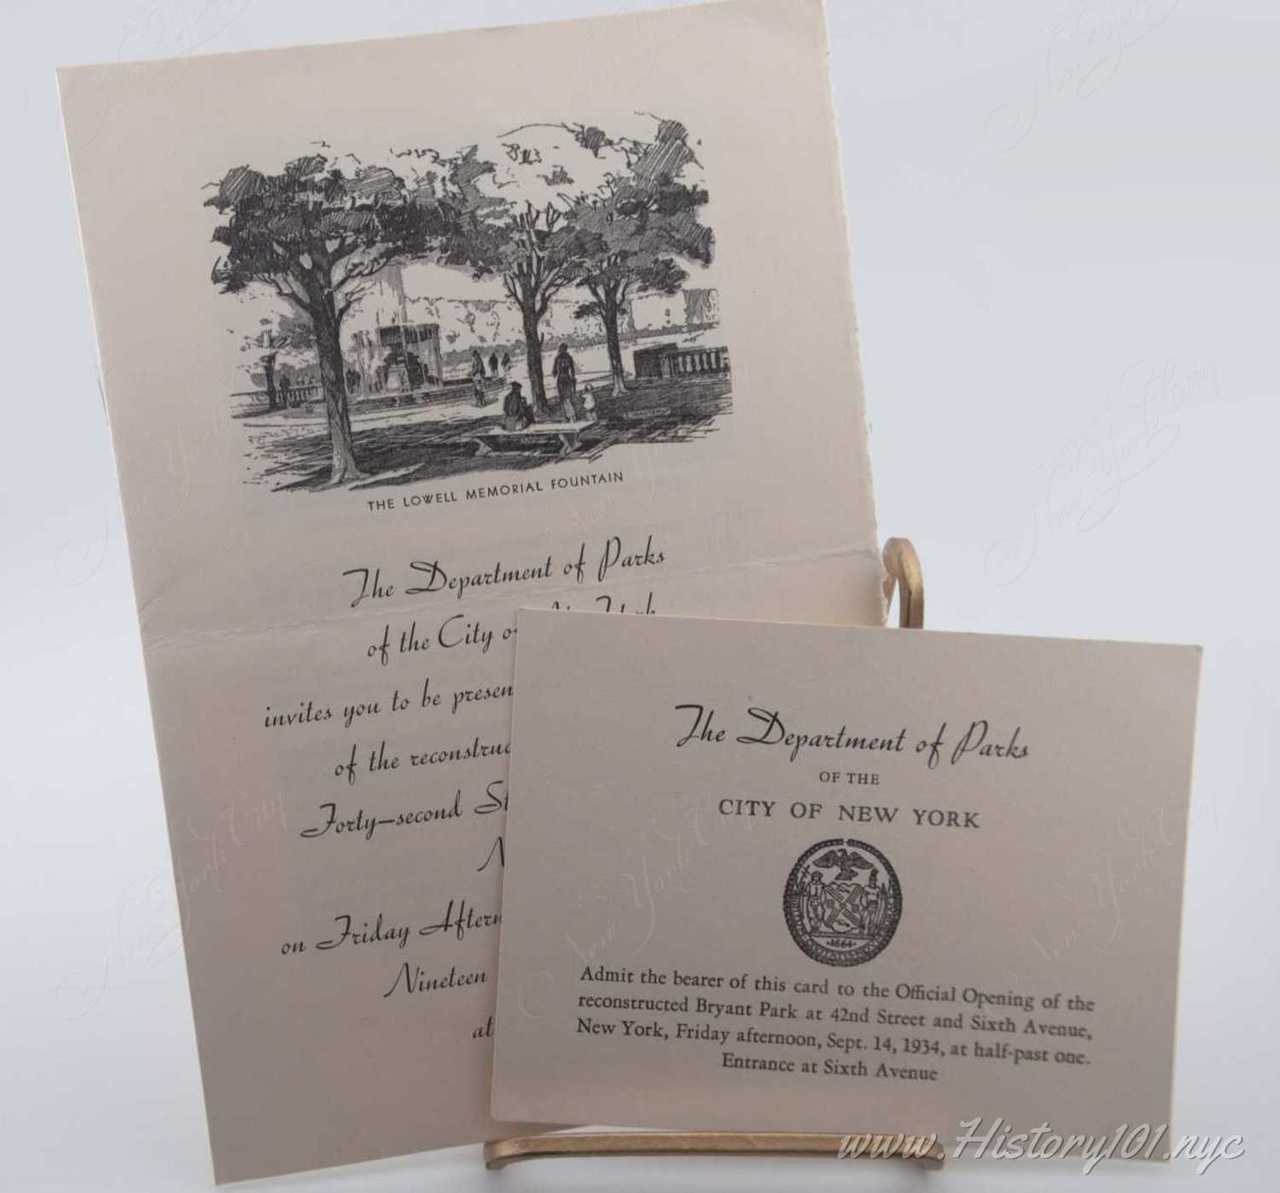 THE LOWELL MEMORIAL FOUNTAIN
The Department of Parks
of the City
invites you to be
of the
Forty-second
on Friday
Nineteen
at
The Department of Parks
OF THE
CITY OF NEW YORK
1664
Admit the bearer of this card to the Official Opening of the
reconstructed Bryant Park at 42nd Street and Sixth Avenue,
New York, Friday afternoon, Sept. 14, 1934, at half-past one.
Entrance at Sixth Avenue
www.History101.nyc